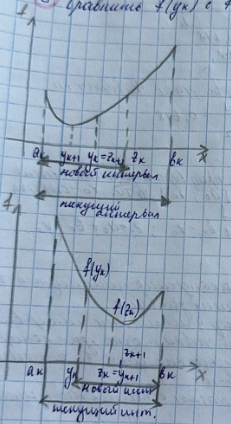 сравнить f(yk) с f
f
ak yk+1 yk=zk+1 zk bk x
новый интервал
текущий интервал
f
f(yk)
f(zk)
zk+1
ak yk zk=yk+1 bk x
новый инт.
текущий инт.